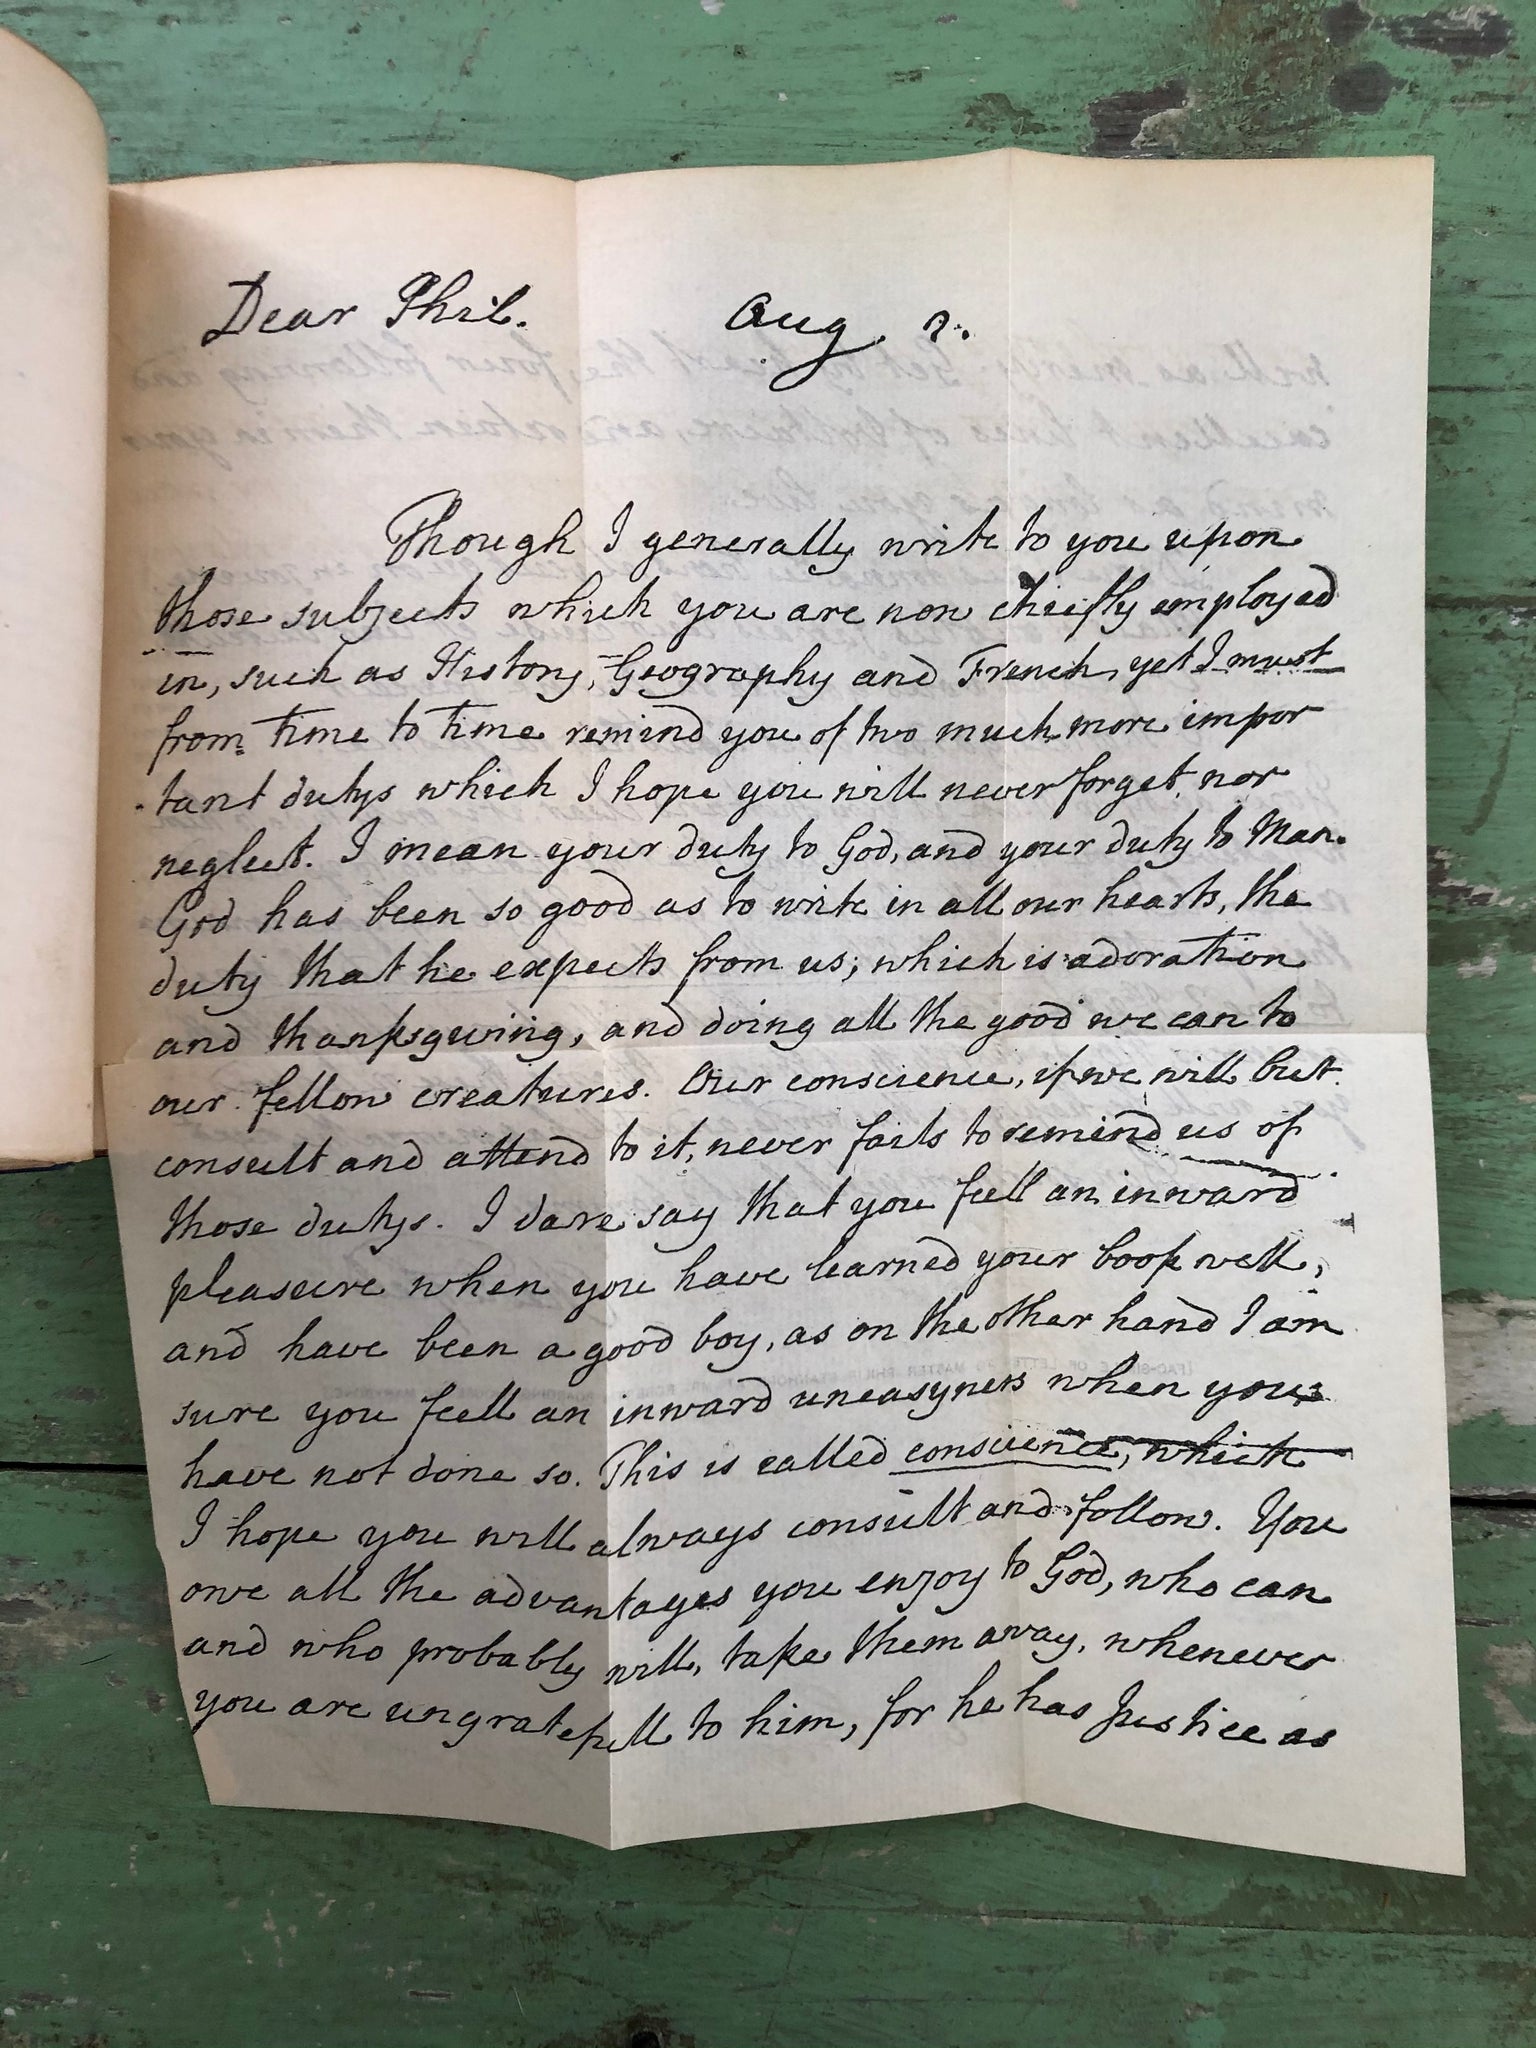 Dear Phil. Aug. 2.
Though I generally write to you upon
those subjects which you are now chiefly employed
in, such as History, Geography and French, yet I must
from time to time remind you of two much more impor
tant dutys which I hope you will never forget, nor
neglect. I mean your duty to God, and your duty to Man.
God has been so good as to write in all our hearts, the
duty that he expects from us; which is adoration
and thanksgiving, and doing all the good we can to
our fellow creatures. Our conscience, if we will but
consult and attend to it, never fails to remind us of
those dutys. I dare say that you feel an inward
pleasure when you have learned your book well,
and have been a good boy, as on the other hand I am
sure you feel an inward uneasyness when you
have not done so. This is called conscience, which
I hope you will always consult and follow. You
owe all the advantages you enjoy to God, who can
and who probably will, take them away, whenever
you are ungratefull to him, for he has Justice as